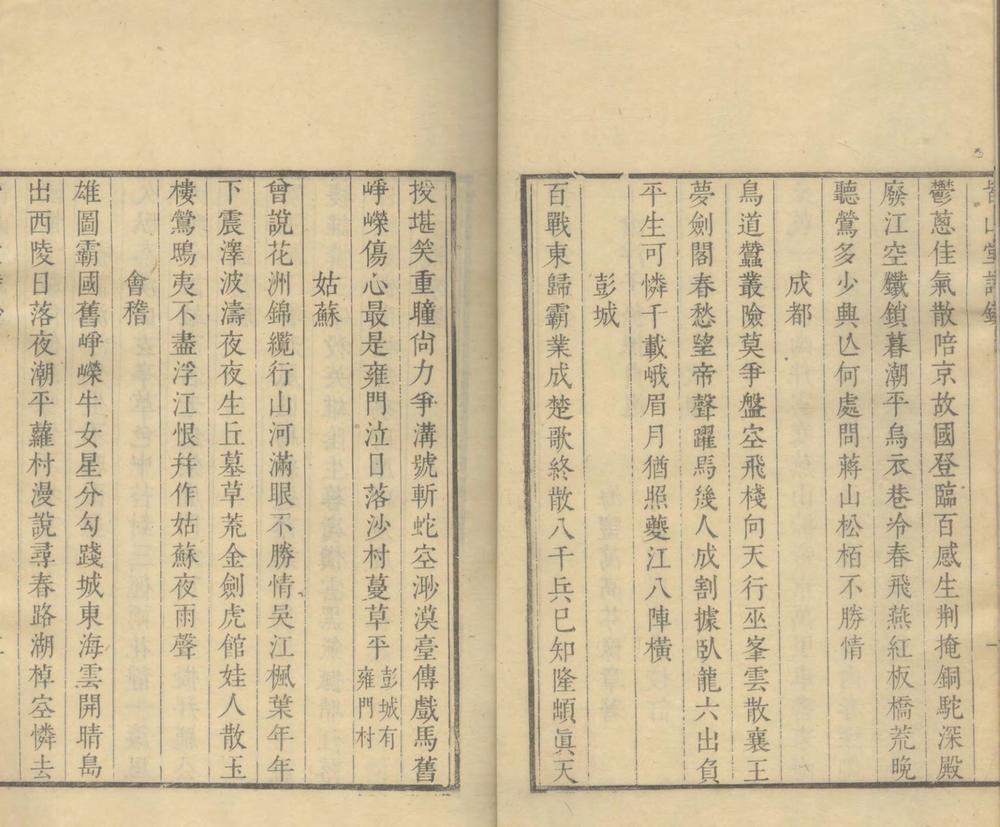 鬱蔥佳氣散陪京故國登臨百感生荆掩銅駝深殿
廢江空鐵鎖暮潮平烏衣巷冷春飛燕紅板橋荒晚
聽鶯多少興亾何處問蔣山松栢不勝情
成都
鳥道蠶叢險莫爭盤空飛棧向天行巫峯雲散襄王
夢劍閣春愁望帝聲躍馬幾人成割據臥龍六出負
平生可憐千載峨眉月猶照夔江八陣橫
彭城
百戰東歸霸業成楚歌終散八千兵已知隆準眞天
授堪笑重瞳尙力爭溝號斬蛇空渺漠臺傳戲馬舊
崢嶸傷心最是雍門泣日落沙村蔓草平彭城有雍門村
姑蘇
曾說花洲錦纜行山河滿眼不勝情吳江楓葉年年
下震澤波濤夜夜生丘墓草荒金劍虎館娃人散玉
樓鶯鴟夷不盡浮江恨幷作姑蘇夜雨聲
會稽
雄圖霸國舊崢嶸牛女星分勾踐城東海雲開晴島
出西陵日落夜潮平蘿村漫說尋春路湖棹空憐去